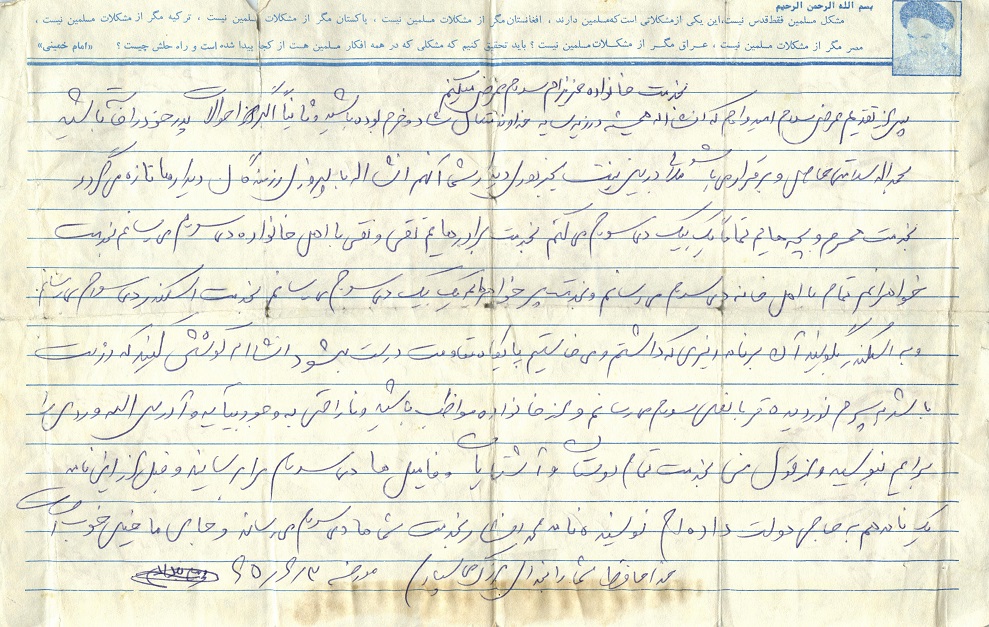 بسم الله الرحمن الرحیم
مشکل مسلمین فقط قدس نیست، این یکی از مشکلاتی است که مسلمین دارند ، افغانستان مگر از مشکلات مسلمین نیست ، پاکستان مگر از مشکلات مسلمین نیست ، ترکیه مگر از مشکلات مسلمین نیست ،
مصر مگر از مشکلات مسلمین نیست ، عراق مگر از مشکلات مسلمین نیست ؟ باید تحقیق کنیم که مشکلی که در همه افکار مسلمین هست از کجا پیدا شده است و راه حلش چیست ؟ «امام خمینی»
خدمت خانواده عزیزم سلام عرض میکنم
پس از تقدیم عرض سلام امیدوارم که انشااله همیشه در زیر سایه خداوند متعال شاد و خرم بوده باشید و ثانیاً اگر از احوالات پدر خود را خواسته باشید
بحمداله سلامتی حاصل و برقرار می باشد ملالی در بین نیست بجز دوری دیدار شما آنهم انشااله با پیروزی رزمندگان دیدارها تازه می گردد
خدمت همسرم و بچه هایم تماماً یک یک دعا سلام می کنم خدمت برادرهایم تقی و نقی با اهل خانواده دعا سلام می رسانم خدمت
خواهرانم تمام با اهل خانه دعا سلام می رسانم و خدمت پسر یک یک دعا سلام می رسانم خدمت اسکندر دعا سلام می رسانم
و به اسکندر بگوئید آن برنامه ریزی که داشتیم و می خواستیم پایگاه مقاومت درست بشود انشااله کوشش کنید که درست
باشد پسرم نوردیده قربانعلی سلام می رسانم و از خانواده مواظب باشید و ناراحتی به وجود نیاید و آدرس اله وردی را
برایم بنویسید و از قول من خدمت تمام دوستان و آشنایان و فامیل ها دعا سلام مرا برسانید و قبل از این نامه
یک نامه هم به حاجی دولت داده ام نویسنده نامه محمد خدمت شما دعا سلام می رساند و جای ما خیلی خوب است
خداحافظ شما را بخدای بزرگ می سپارم مورخه